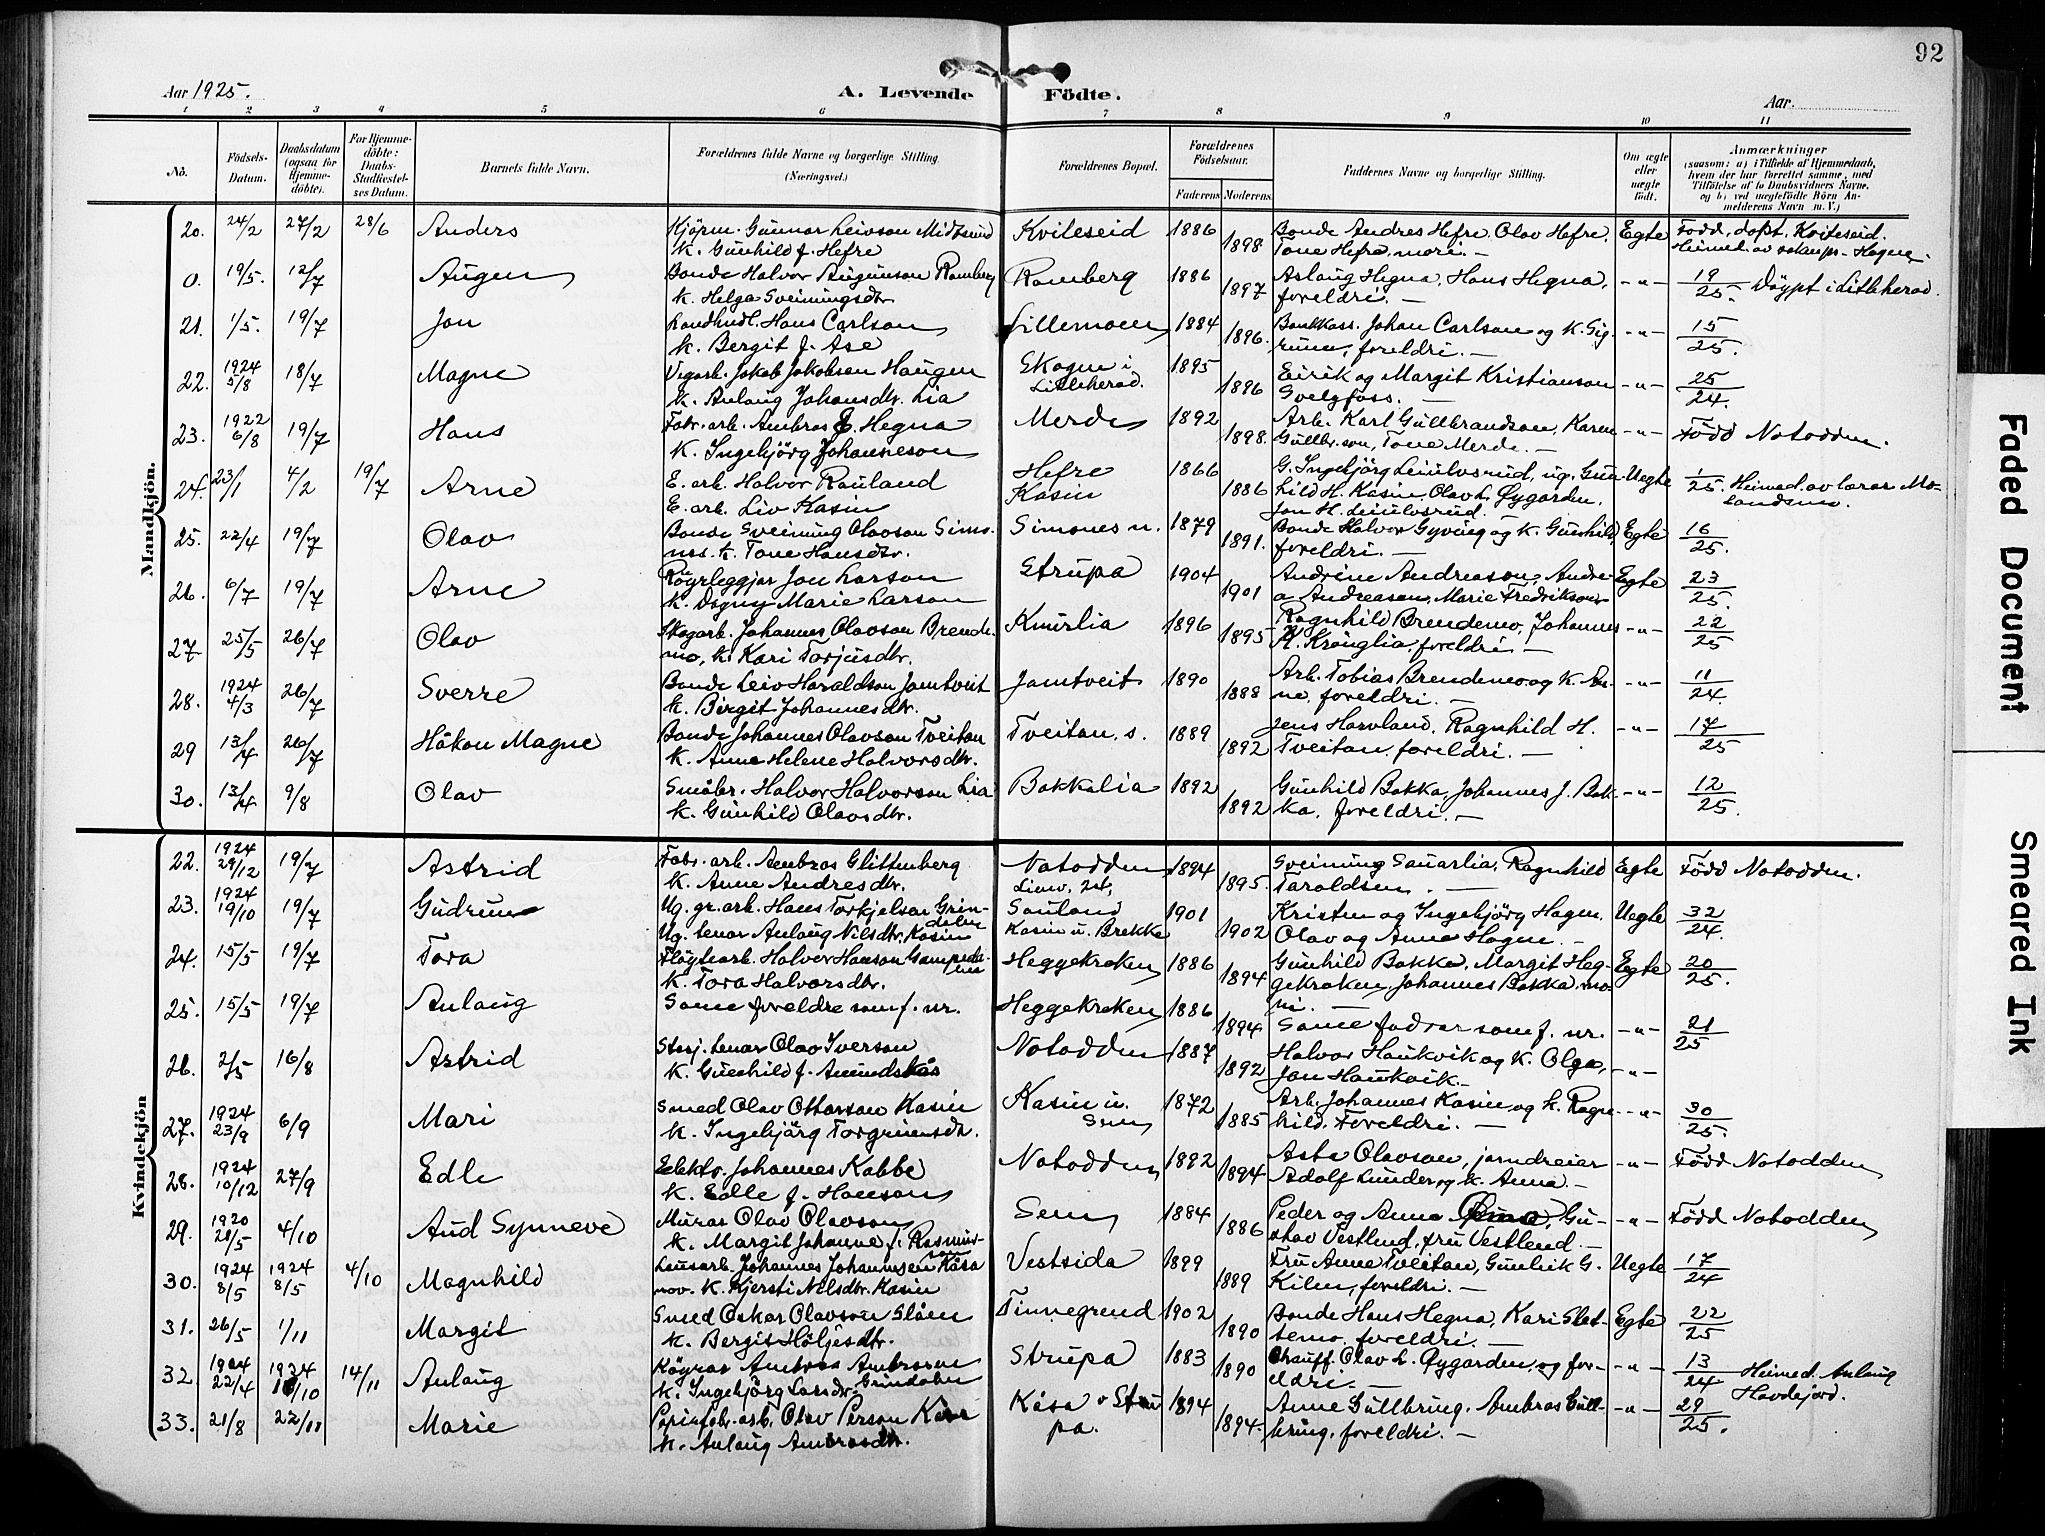 92
Aar 1925.
A. Levende Födte.
Aar.
1 2 3 4 5 6 7 8 9 10 11
No.
Födsels-Datum.
Daabsdatum (ogsaa for Hjemmedöbte).
For Hjemmedöbte: Daabs-Stadfæstelses Datum.
Barnets fulde Navn.
Forældrenes fulde Navne og borgerlige Stilling. (Næringsvei.)
Forældrenes Bopæl.
Forældrenes Födselsaar.
Faderens Moderens
Faddernes Navne og borgerlige Stilling.
Om ægte eller uægte født.
Anmærkninger
(saasom: a) i Tilfælde af Hjemmedaab, hvem der har forrettet samme, med Tilføielse af to Daabsvidners Navne, og b) ved uægtefødte Börn Anmelderens Navn m. V.)
Mandkjön.
20. 24/2 27/2 28/6 Anders
Kjörm. Gunnar Leivson Midtsund
K. Gunhild f. Hefre
Kviteseid 1886 1898
Bonde Andres Hefre, Olav Hefre,
Tone Hefre, mori. —
Egte
Född, döpt, Kviteseid.
0. 19/5. 12/7 Augen
Bonde Halvor Augunson Ramberg
K. Helga Sveiningsdtr.
Ramberg 1886 1897
Aslaug Hegna, Hans Hegna,
foreldri. —
-"- 19/25. Döypt i Litleherad.
21. 1/5. 19/7 Jon
Landhndl. Hans Carlson
K. Bergit f. Ase
Lillemoen 1884 1896.
Bankkass. Johan Carlson og K. Sigrunn, foreldri. —
-"- 15/25.
22. 1924 5/8 18/7 Magne
Vegarb. Jakob Jakobsen Haugen
K. Aslaug Johansdtr. Lia
Skogen i Litleherad. 1895 1896
Eirik og Margit Kristianson
Svelgfoss. —
-"- 25/24.
23. 1922 6/8 19/7 Hans
Fabr. arb. Ambros E. Hegna
K. Ingebjörg Johanneson
Merde 1892 1898.
Arb. Karl Gullbrandson, Karen
Gullbr.son, Tone Merde. —
-"- Född Notodden.
24. 23/1 4/2 19/7 Arne
E. arb. Halvor Rauland
E. arb. Liv Kasin
Hefre
Kasin
1866 1886
G. Ingebjörg Leiulvsrud, ug. Gunhild H. Kasin, Olav L. Øygarden,
Jon H. Leiulvsrud.
Uegte 1/25. Heimed. av lærar Molandsmo.
25. 22/4 19/7 Olav
Bonde Sveinung Olavson Simones. K. Tone Hansdtr.
Simones n. 1879 1891.
Bonde Halvor Gyving og K. Gunhild,
foreldri. —
Egte 16/25.
26. 6/7 19/7 Arne
Røyrleggjar Jon Larson
K. Dagny Marie Larson
Strupa 1904 1901
Andrine Andreason, Andrea Andreason, Marie Fredrikson
Egte 23/25.
27 25/5 26/7 Olav
Skogarb. Johannes Olavson Brendemo, K. Kari Torjusdtr.
Knurlia 1896 1895
Ragnhild Brendemo, Johannes
H. Kronglia, foreldri —
-"- 22/25
28. 1924 4/3 26/7 Sverre
Bonde Leiv Haraldson Jamtveit
K. Birgit Johannesdtr.
Jamtveit 1890 1888
Arb. Tobias Brendemo og K. Anne, foreldri. —
-"- 11/24.
29 13/4 26/7 Håkon Magne
Bonde Johannes Olavson Tveitan
K. Anne Helene Halvorsdtr.
Tveitan, s. 1889 1892
Jens Harvland, Ragnhild H.
Tveitan, foreldri. —
-"- 17/25
30. 13/4 9/8 Olav
Småbr. Halvor Halvorson Lia
K. Gunhild Olavsdtr.
Bakkalia 1892 1892
Gunhild Bakka, Johannes J. Bakka, foreldri. —
-"- 12/25.
Kvindekjön
22. 1924 29/12 19/7 Astrid
Fabr. arb. Ambros Glittenberg
K. Anne Andresdtr.
Notodden 1894 1895.
Sveinung Sauarlia, Ragnhild
Taraldsen. —
Egte Född Notodden.
23. 1924 19/10 19/7 Gudrun
Ug. gr. arb. Hans Torkjelson Grindalen
Ug. tenar Aslaug Nilsdtr. Kasin
Sauland
Kasin u. Brekke
1901 1902
Kristen og Ingebjörg Hagen,
Olav og Anne Hagen. —
Uegte 32/24.
24. 15/5 19/7 Tora
Fløytearb. Halvor Hanson Gampedalen
K. Tora Halvorsdtr.
Heggekroken 1886 1894
Gunhild Bakka, Margit Heggekroken, Johannes Bakka, mori. —
Egte 20/25.
25. 15/5 19/7 Aslaug
Same foreldre som f. nr.
Heggekroken 1886 1894
Same fadrar som f. nr.
-"- 21/25
26. 2/5 16/8 Astrid
Stasj. tenar Olav Iverson
K. Gunhild f. Amundsås
Notodden 1887 1892
Halvor Haukvik og K. Olga,
Jon Haukvik. —
-"-
27. 1924 23/9 6/9 Mari
Smed Olav Ottarson Kasin
K. Ingebjörg Torgrimsdtr.
Kasin u. Sem 1872 1885
Arb. Johannes Kasin og K. Ragnhild. Foreldri. —
-"- 30/25.
28. 1924 10/12 27/9 Edle
Elektr. Johannes Kabbe
K. Edle f. Hanson
Notodden 1892 1894
Asta Olavson, jarndreier
Adolf Lunder og K. Anna. —
-"- Född Notodden
29. 1920 21/5 4/10 Aud Synneve
Murar Olav Olavson
K. Margit Johanne f. Rasmus-
Sem 1884 1886
Peder og Anna, Gustav Vestlund, fru Vestlend. —
-"- Född Notodden
30. 1924 8/5 1924 8/5 4/10 Magnhild
Lausarb. Johannes Johannsen Kåsa
nov. K. Kjersti Nilsdtr. Kasin
Vestsida 1899 1889
Fru Anne Tveitan, Gunleik G.
Kilen, foreldri. —
Uegte 17/24
31. 26/5 1/11 Margit
Smed Oskar Olavson Slåen
K. Bergit Höljesdtr.
Tinnegrend 1902 1890
Bonde Hans Hegna, Kari Slettemo, foreldri. —
Egte 22/25
32. 1924 22/4 1924 /10 14/11 Aslaug
Røyrar Ambros Ambroson
K. Ingebjörg Larsdtr. Grindalen
Strupa 1883 1890
Chauff. Olav L. Øygarden, og foreldri. —
-"- 13/24 Heimed. Aslaug
Havdejord.
33. 21/8 22/11 Marie
Papirfabr. arb. Olav Person Kåsa
K. Aslaug Ambrosdtr.
Kåsa v Strupa. 1894 1894.
Anne Gullbring, Ambros Gullbring, foreldri. —
-"- 29/25.
Faded Document
Smeared Ink